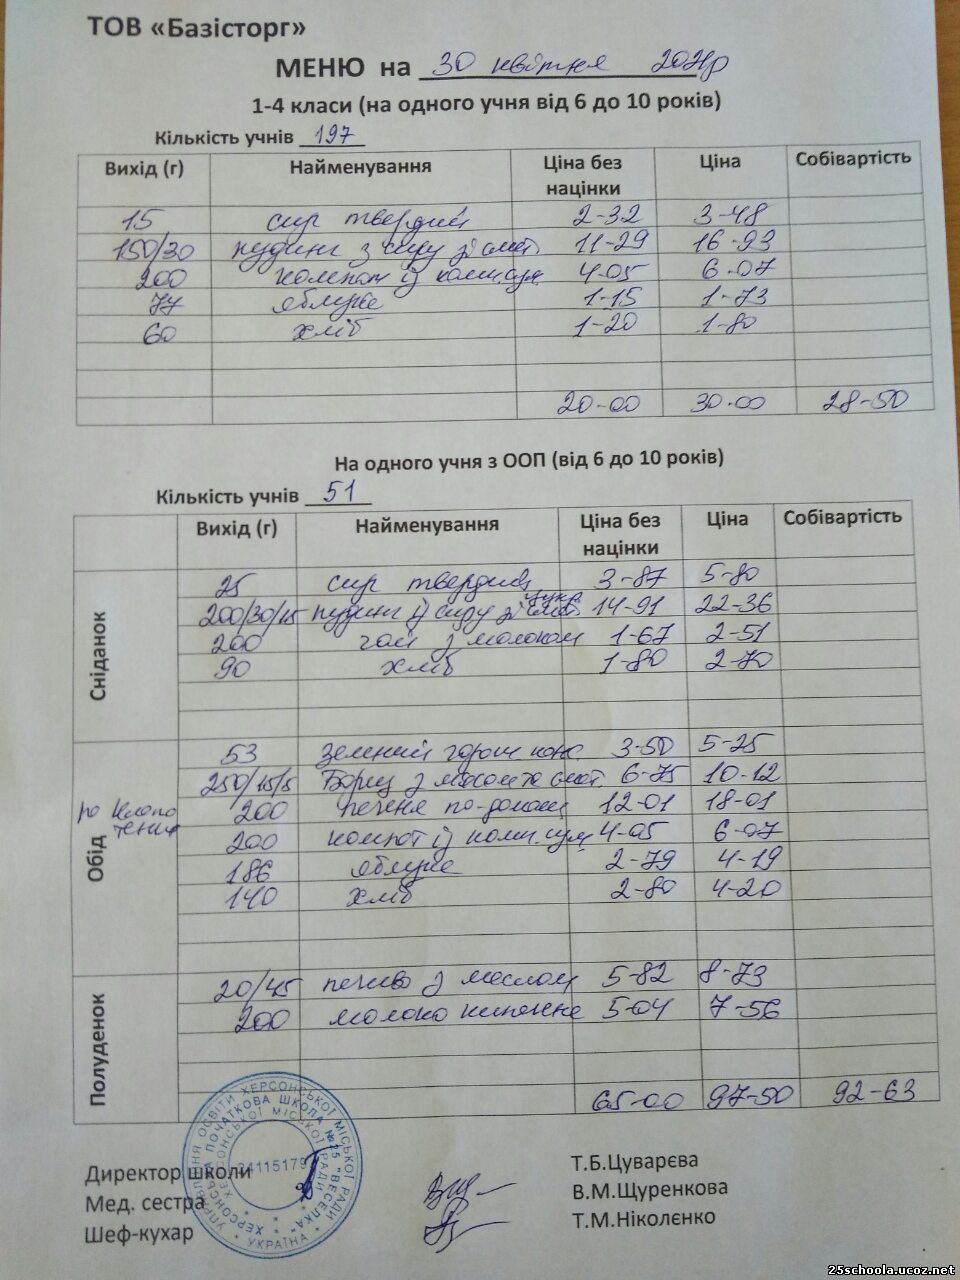 ТОВ «Базісторг»
МЕНЮ на 30 квітня 2021р
1-4 класи (на одного учня від 6 до 10 років)
Кількість учнів 197
Вихід (г) Найменування Ціна без націнки Ціна Собівартість
15 сир твердий 2-32 3-48
150/30 пудинг з сиру зі смет. 11-29 16-93
200 компот із комп.сум. 4-05 6-07
77 яблуке 1-15 1-73
60 хліб 1-20 1-80
20-00 30-00 28-50
На одного учня з ООП (від 6 до 10 років)
Кількість учнів 51
Вихід (г) Найменування Ціна без націнки Ціна Собівартість
Сніданок
25 сир твердий 3-87 5-80
200/30/15 пудинг із сиру зі смет. 14-91 22-36
200 чай з молоком 1-67 2-51
90 хліб 1-80 2-70
Обід
53 зелений горош. конс. 3-50 5-25
250/15/5 Борщ з мясом та смет. 6-75 10-12
200 печеня по-домаш 12-01 18-01
200 компот із комп.сум 4-05 6-07
186 яблуке 2-79 4-19
140 хліб 2-80 4-20
Полуденок
20/45 печиво з маслом 5-82 8-73
200 молоко кипячене 5-04 7-56
65-00 97-50 92-63
УПРАВЛІННЯ ОСВІТИ ХЕРСОНСЬКОЇ МІСЬКОЇ РАДИ
ХЕРСОНСЬКА ПОЧАТКОВА ШКОЛА №25 "ВЕСЕЛКА"
ХЕРСОНСЬКОЇ МІСЬКОЇ РАДИ
24115179
УКРАЇНА
Директор школи Т.Б.Цуварєва
Мед. сестра В.М.Щуренкова
Шеф-кухар Т.М.Ніколєнко
25schoola.ucoz.net